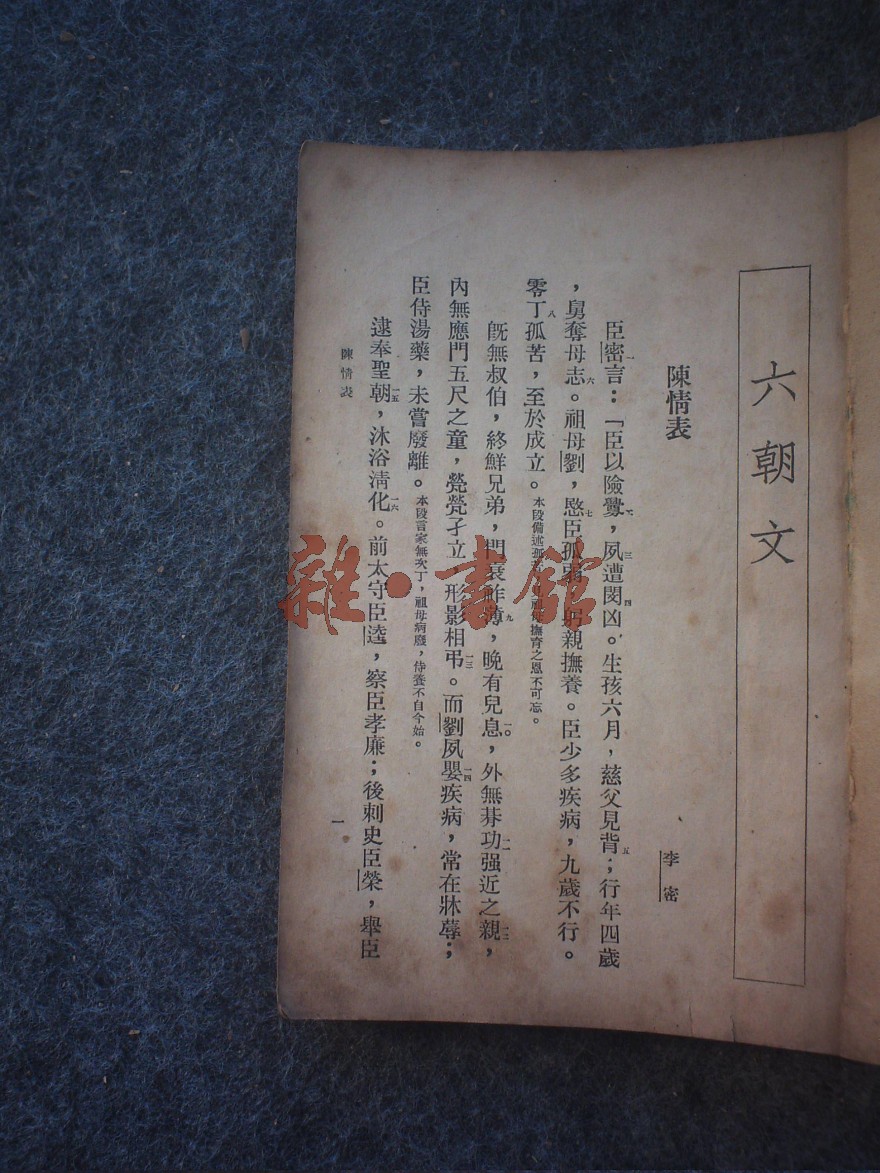 六朝文
陳情表
李密
臣密一言：「臣以險釁二，夙三遭閔四凶。生孩六月，慈父見背五；行年四歲
，舅奪母志六。祖母劉，愍七臣孤弱，躬親撫養。臣少多疾病，九歲不行。
零丁八孤苦，至於成立。本段備述孤祖母撫育之恩不可忘。
旣無叔伯，終鮮兄弟，門衰祚薄九，晚有兒息一〇，外無朞功一一强近之親一二，
內無應門五尺之童，煢煢孑立，形影相弔一三。而劉夙嬰一四疾病，常在牀蓐；
臣侍湯藥，未嘗廢離。本段言家無次丁，祖母病廢，侍養不自今始。
逮奉聖朝一五，沐浴淸化一六。前太守臣逵，察臣孝廉；後刺史臣榮，舉臣
陳情表
一
雜·書館